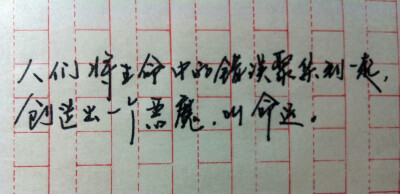 人们将生命中的错误聚集到一起,
创造出一个恶魔,叫命运。